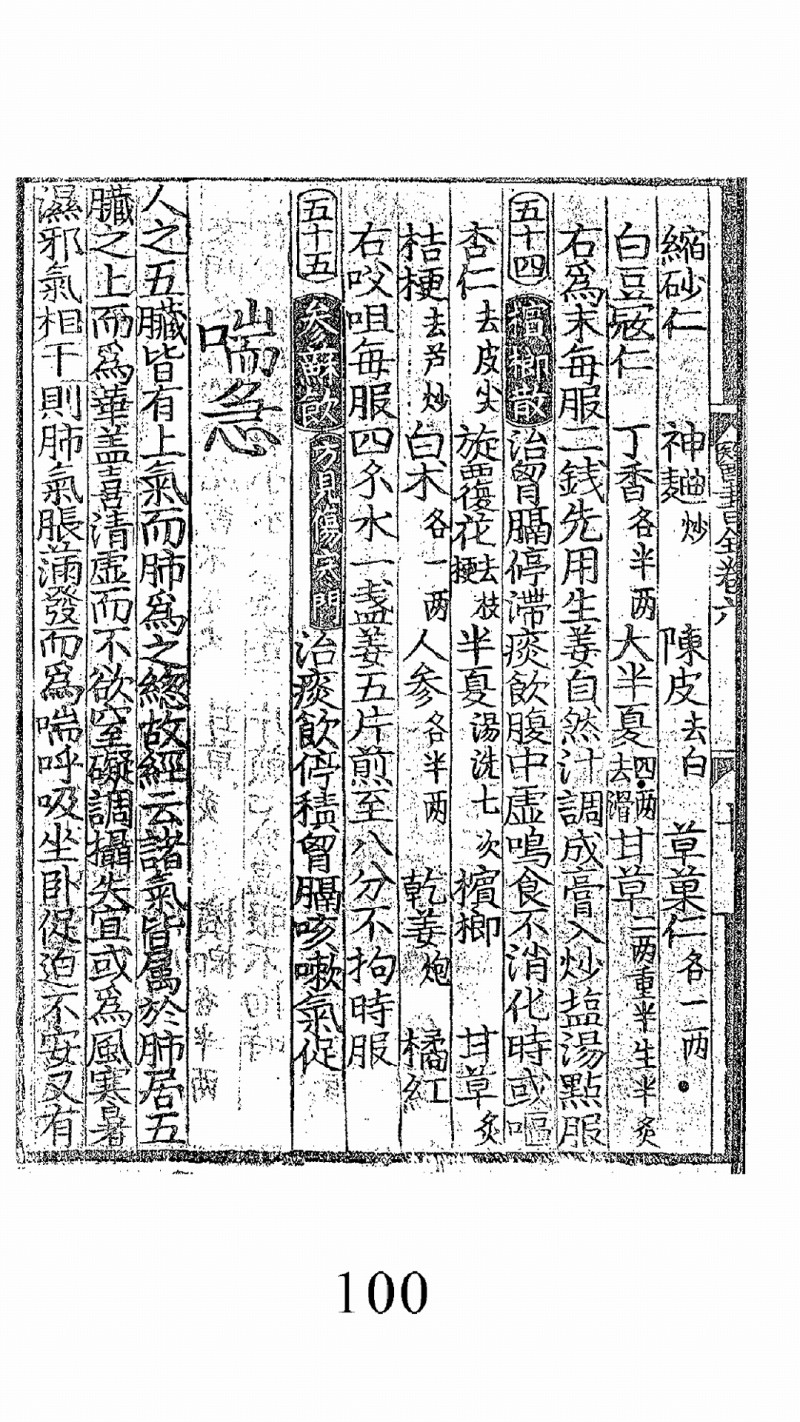 縮砂仁 神麯炒 陳皮去白 草菓仁各一两
白豆宼仁 丁香各半两 大半夏四两去滑 甘草二两重半生半炙
右為末每服二錢先用生姜自然汁調成膏入炒盐湯點服
五十四 檳榔散 治胷膈停滯痰飲腹中虚鳴食不消化時或嘔
杏仁去皮尖 旋覆花去枝梗 半夏湯洗七次 檳榔 甘草炙
桔梗去芦炒 白术各一两 人参各半两 乾姜炮 橘紅
右㕮咀每服四𠆤水一盏姜五片煎至八分不拘時服
五十五 参蘇飲 方見傷寒門 治痰飲停積胷膈咳嗽氣促
喘急
人之五臟皆有上氣而肺為之緫故經云諸氣皆属於肺居五
臟之上而為華盖喜清虚而不欲窒礙調攝失宜或為風寒暑
濕邪氣相干則肺氣脹滿發而為喘呼吸坐卧促迫不安又有
書目全卷六
100